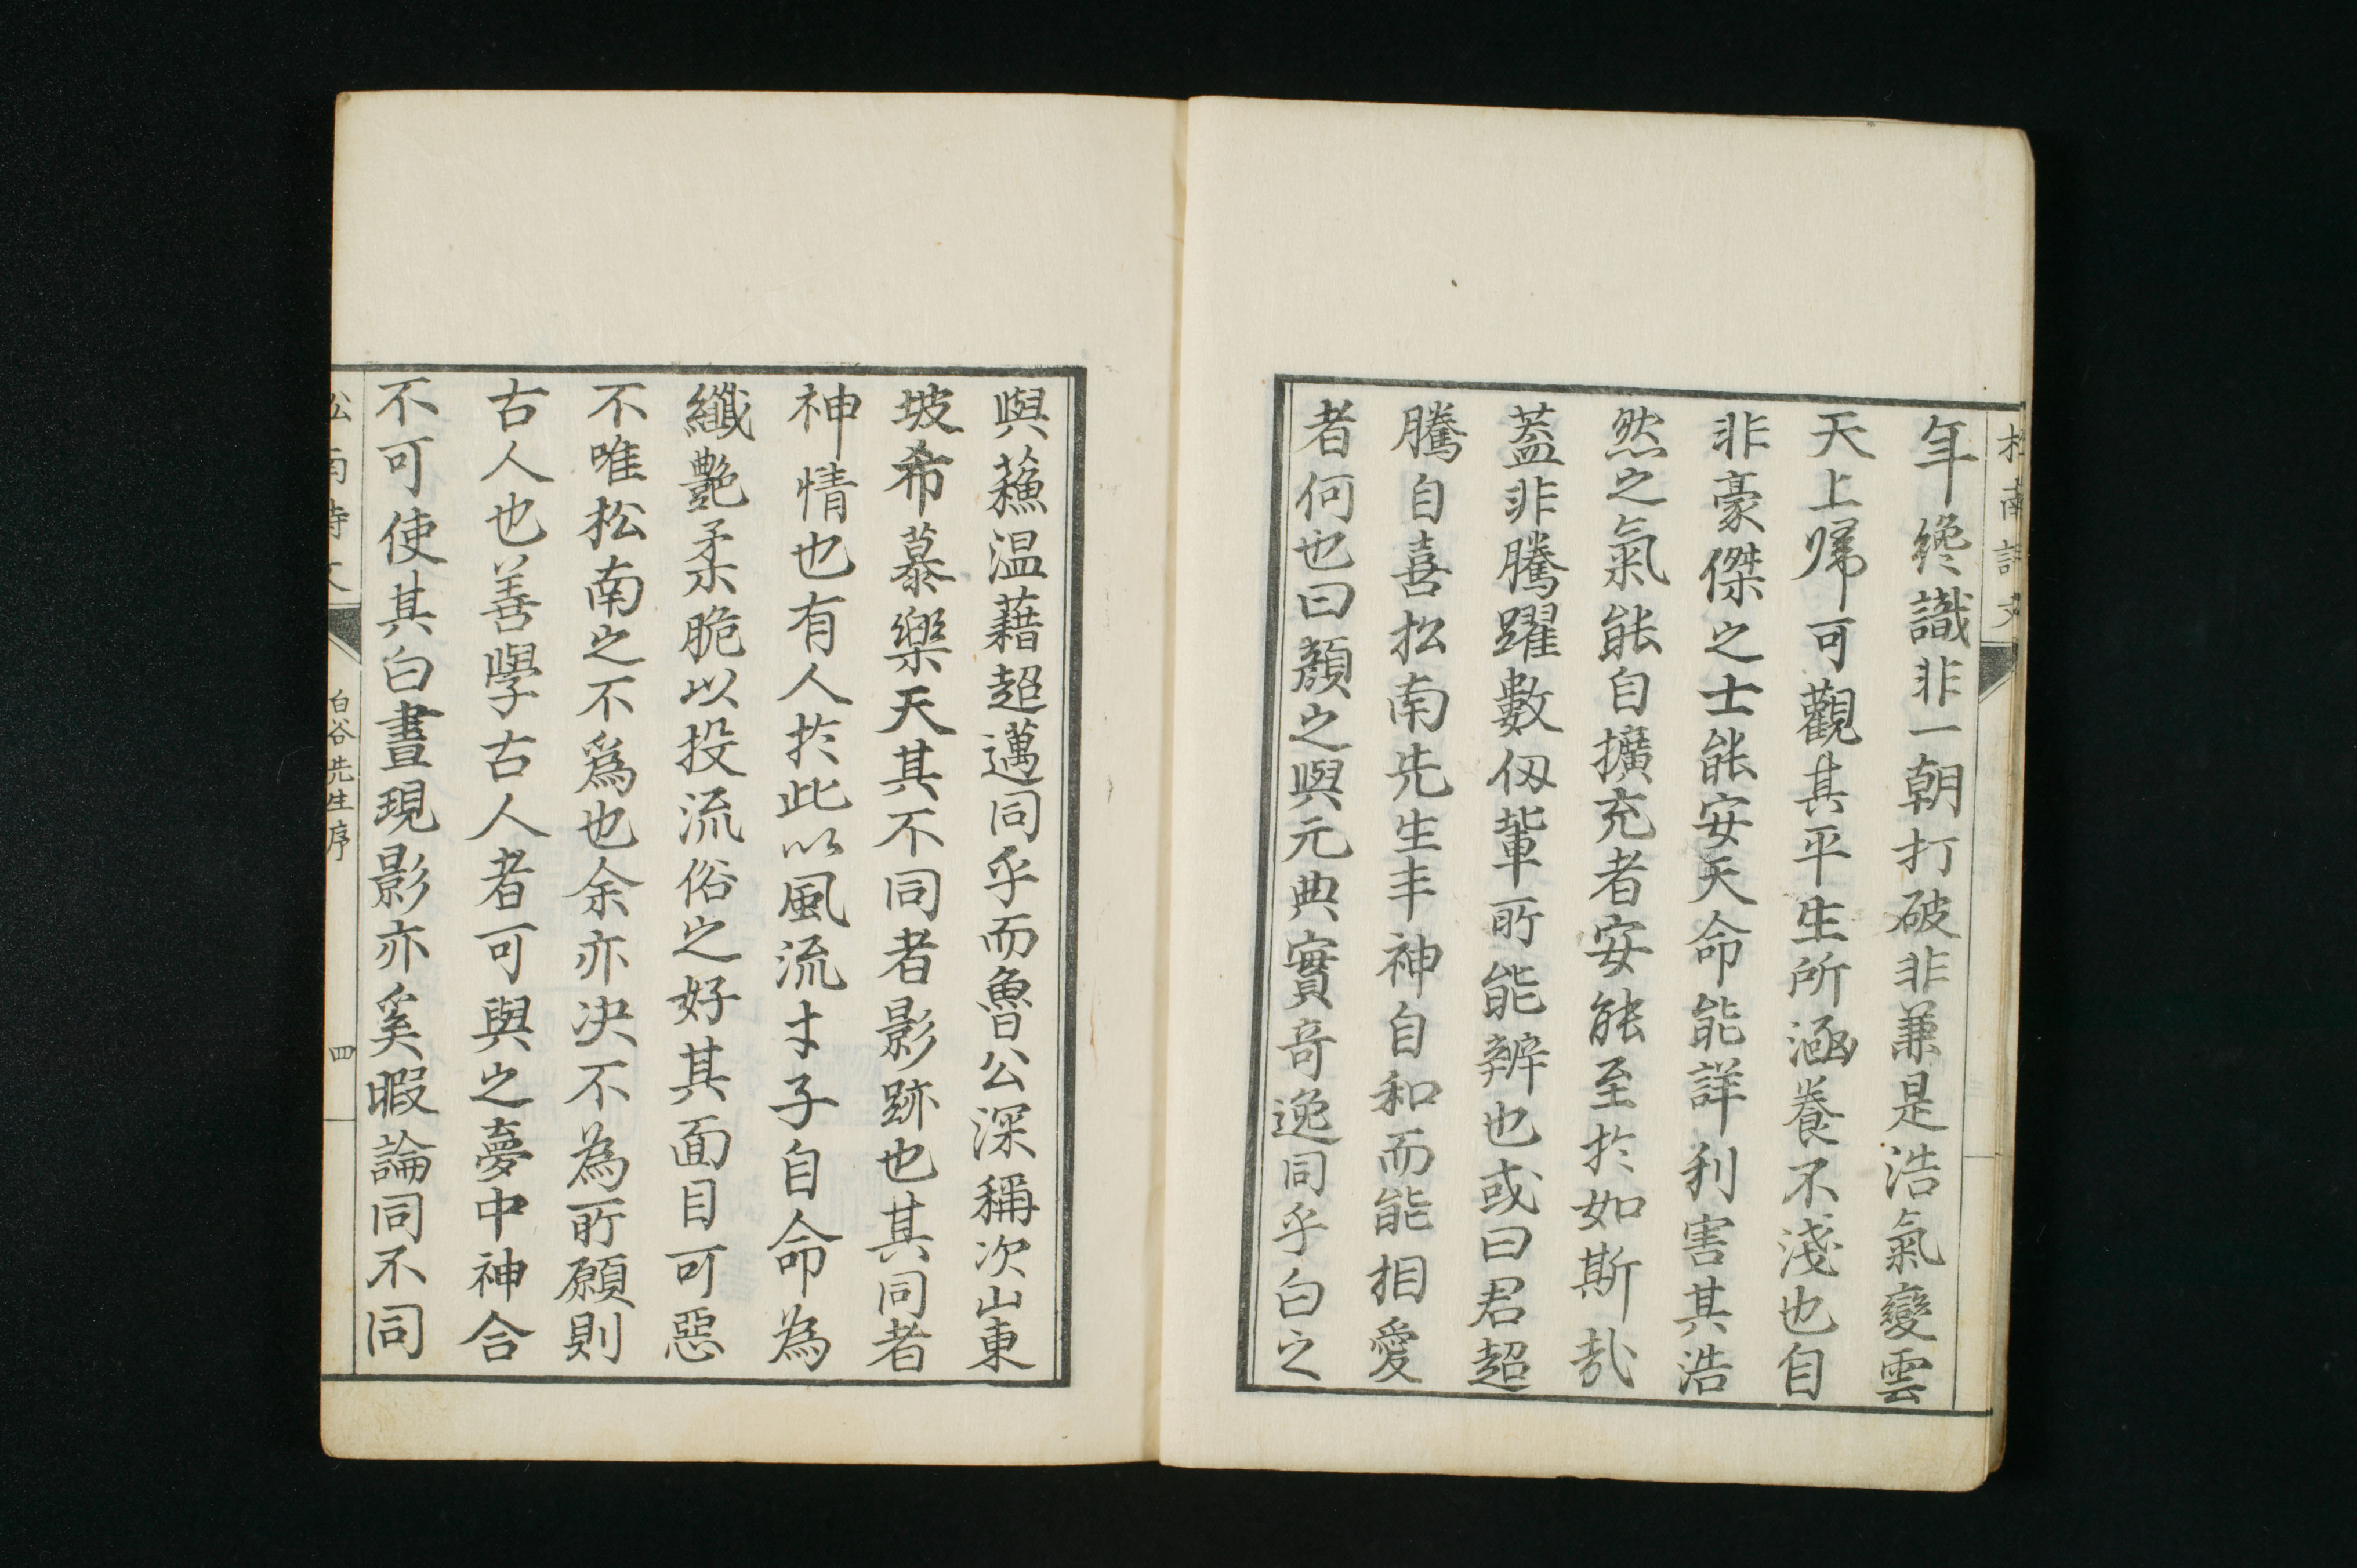 年纔識非一朝打破非兼是浩氣變雲
天上歸可觀其平生所涵養不淺也自
非豪傑之士能安天命能詳利害其浩
然之氣能自擴充者安能至於如斯哉
蓋非騰躍數仭輩所能辨也或曰君超
騰自喜松南先生丰神自和而能相愛
者何也曰顏之與元典實奇逸同乎白之
與蘓温藉超邁同乎而魯公深稱次山東
坡希慕樂天其不同者影跡也其同者
神情也有人於此以風流才子自命為
纖艷柔脆以投流俗之好其面目可惡
不唯松南之不爲也余亦决不為所願則
古人也善學古人者可與之夢中神合
不可使其白晝現影亦奚暇論同不同
白谷先生序
四